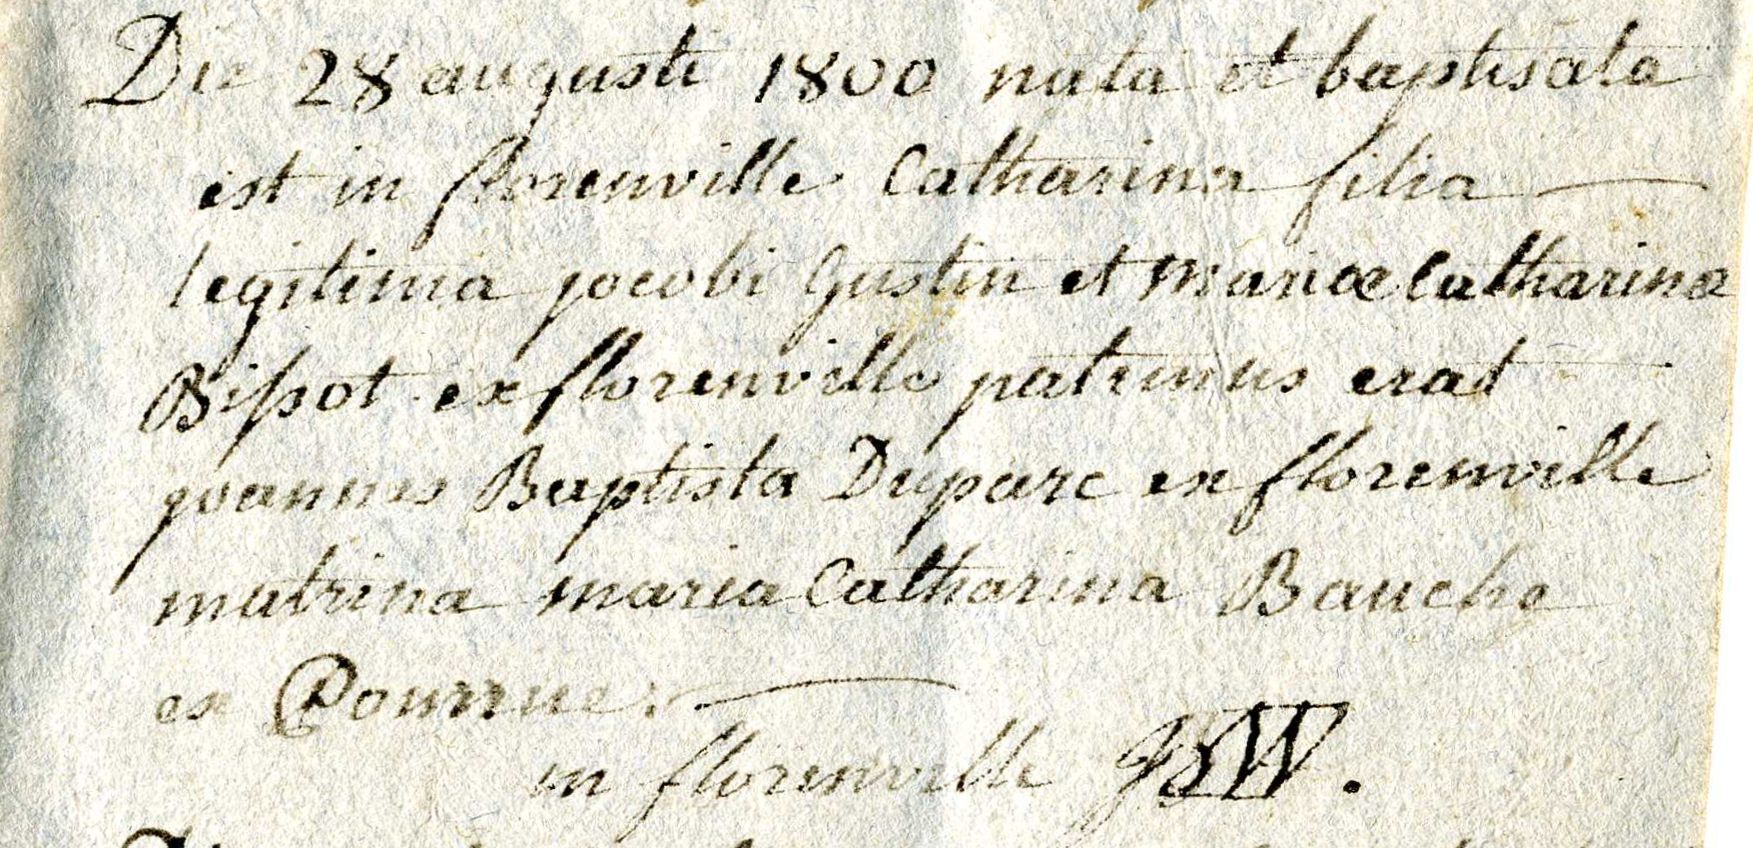 Die 28 augusti 1800 nata et baptisata
est in florenville Catharina filia
legitima jacobi Gustin et mariæ Catharinæ
Bissot ex florenville patrinus erat
joannes Baptista Duparc ex florenville
matrina maria Catharina Bauche
ex Pourrue.
in florenville